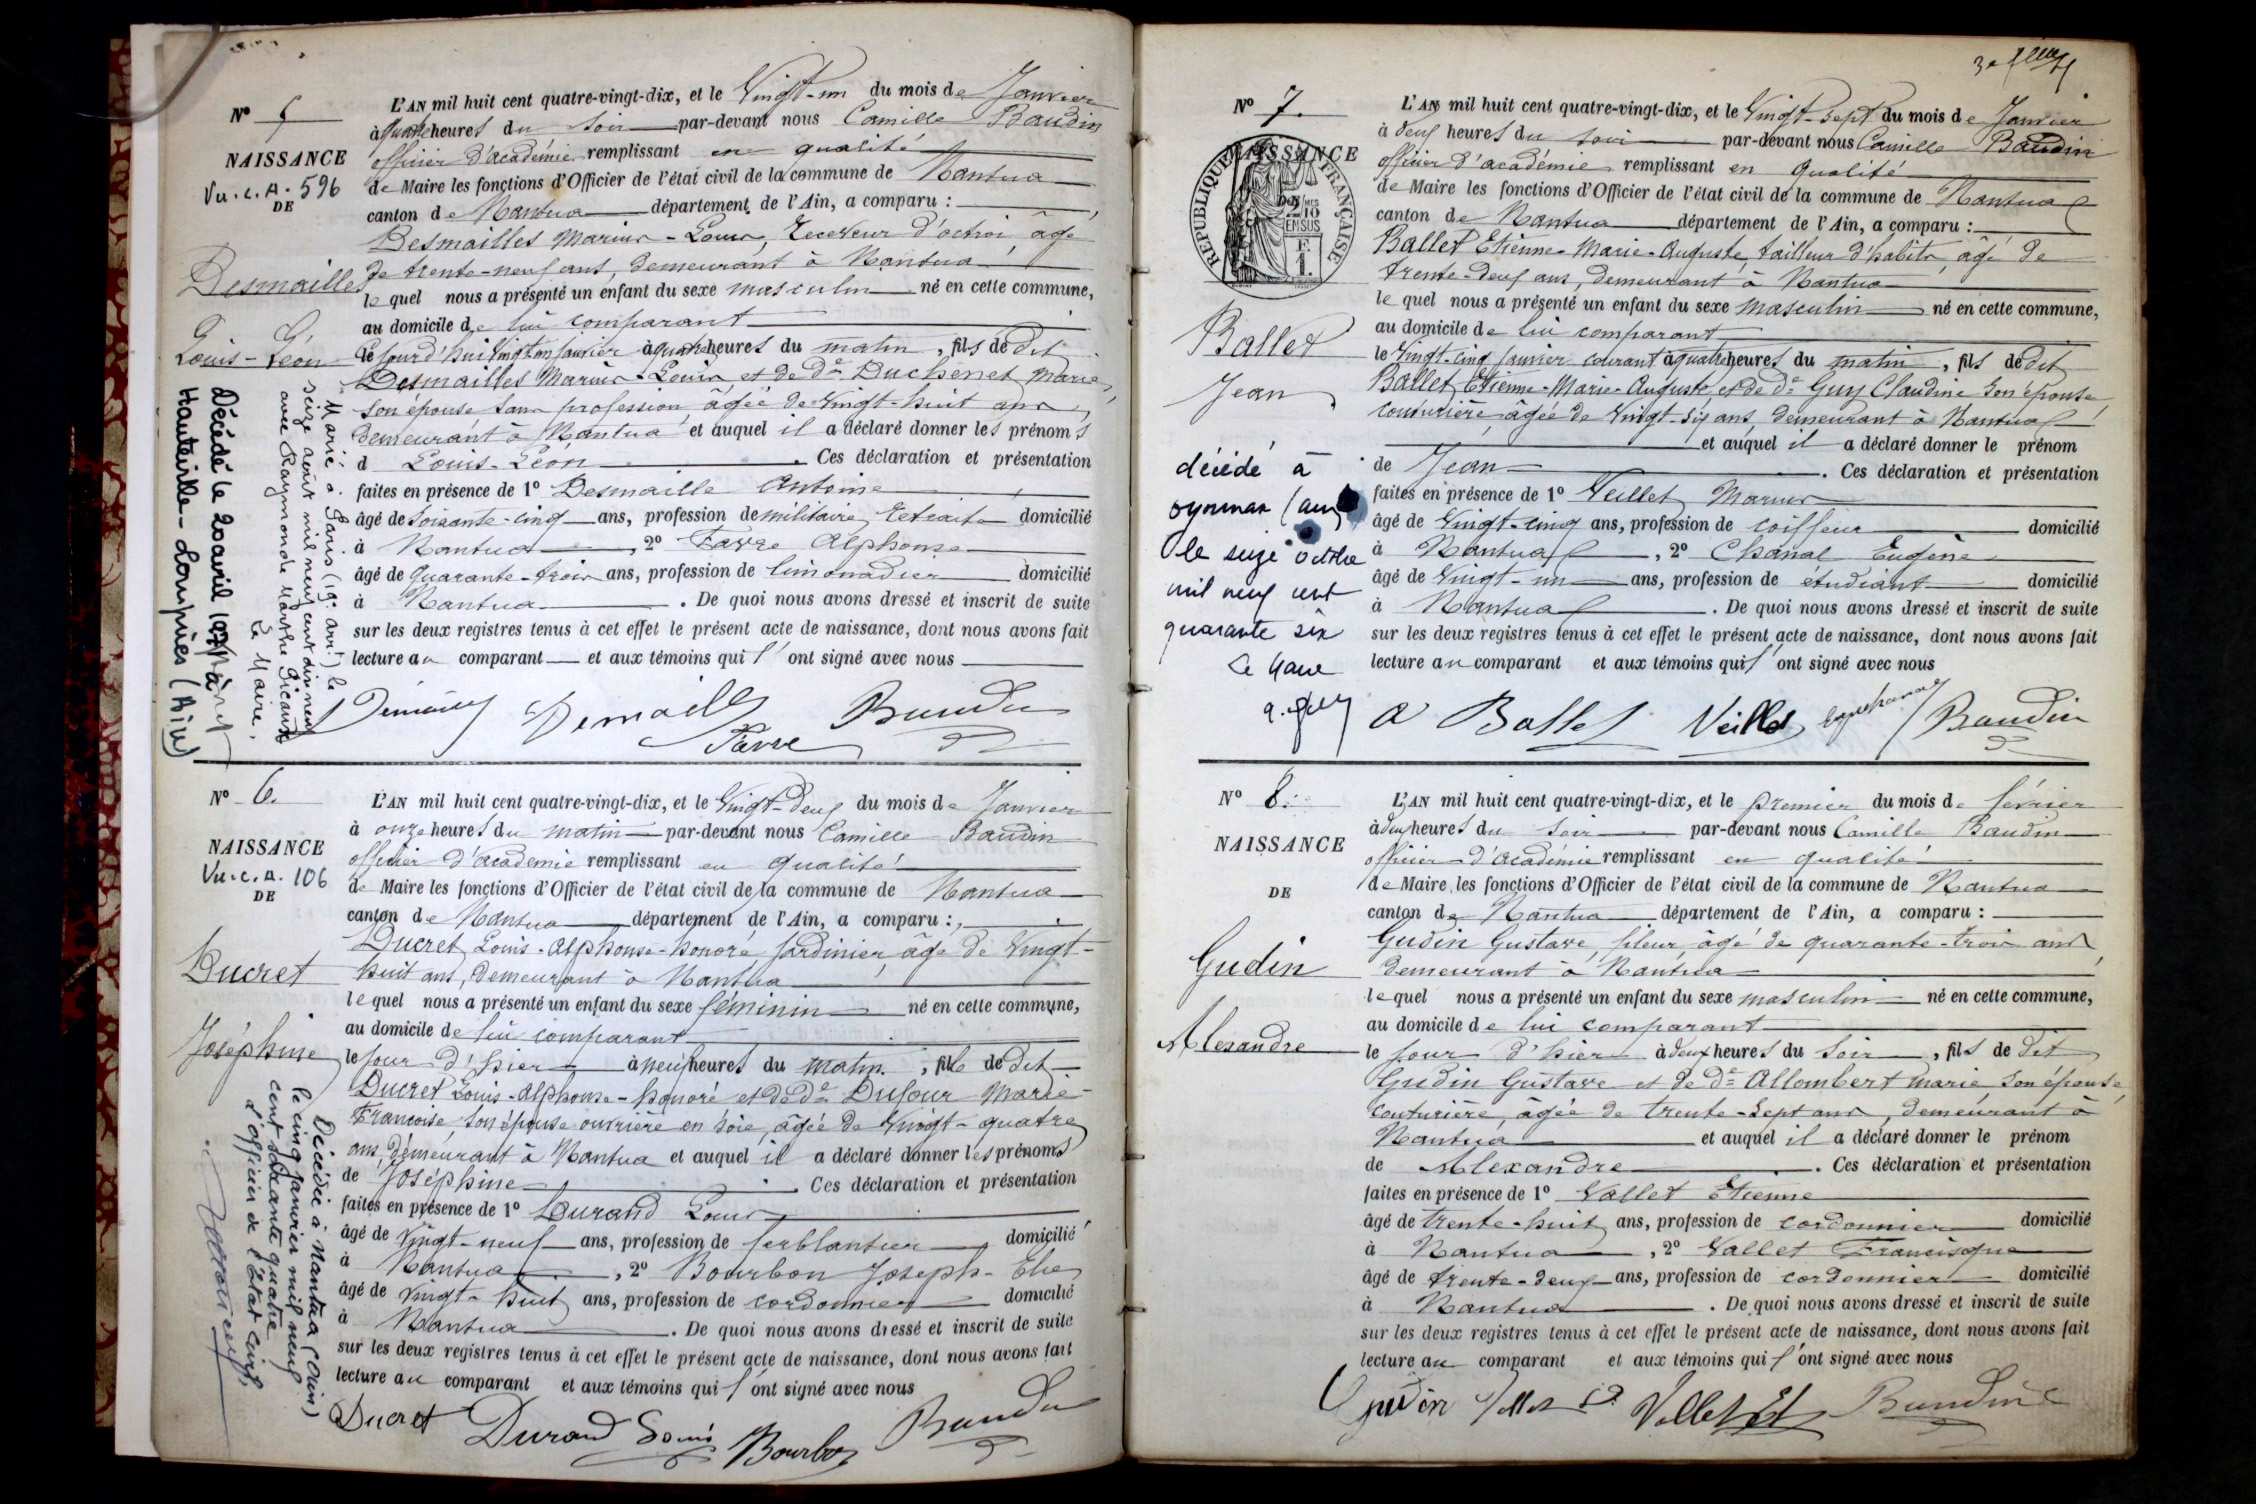 Nº 5
NAISSANCE
Vu. C. A. 596
DE
Desmailles
Louis-Léon
L'AN mil huit cent quatre-vingt-dix, et le Vingt-un du mois de Janvier
à quatre heures du soir par-devant nous Camille Baudin
officier d'académie remplissant en qualité
de Maire les fonctions d'Officier de l'état civil de la commune de Nantua
canton de Nantua département de l'Ain, a comparu :
Desmailles Marius-Louis, receveur d'octroi âgé
de trente-neuf ans, demeurant à Nantua
lequel nous a présenté un enfant du sexe masculin né en cette commune,
au domicile de lui comparant
le jourd'hui vingt un janvier à quatre heures du matin, fils de dit
Desmailles Marius-Louis et de de Duchenet Marie,
son épouse sans profession, âgée de vingt-huit ans,
demeurant à Nantua et auquel il a déclaré donner les prénoms
d Louis-Léon. Ces déclaration et présentation
faites en présence de 1º Desmaille Antoine
âgé de soixante-cinq ans, profession de militaire retraité domicilié
à Nantua, 2º Favre Alphonse
âgé de quarante-trois ans, profession de limonadier domicilié
à Nantua. De quoi nous avons dressé et inscrit de suite
sur les deux registres tenus à cet effet le présent acte de naissance, dont nous avons fait
lecture au comparant et aux témoins qui l'ont signé avec nous
Demaille
Favre
Baudin
Marié à Paris (9e arrt) le
seize août mil neuf cent dix neuf
avec Raymonde Marthe
Le Maire,
Décédé le 20 avril à
Hauteville-Lompnès (Ain)
Nº 6.
NAISSANCE
Vu. C. A. 106
DE
Ducret
Joséphine
L'AN mil huit cent quatre-vingt-dix, et le Vingt-deux du mois de Janvier
à onze heures du matin par-devant nous Camille Baudin
officier d'académie remplissant en qualité
de Maire les fonctions d'Officier de l'état civil de la commune de Nantua
canton de Nantua département de l'Ain, a comparu :
Ducret Louis-Alphonse-honoré jardinier, âgé de Vingt-
huit ans, demeurant à Nantua
lequel nous a présenté un enfant du sexe féminin né en cette commune,
au domicile de lui comparant
le jour d'hier à neuf heures du matin, fille de dit
Ducret Louis-Alphonse-honoré et de de Dufour Marie-
Françoise, son épouse ouvrière en soie, âgée de Vingt-quatre
ans, demeurant à Nantua et auquel il a déclaré donner les prénoms
de Joséphine. Ces déclaration et présentation
faites en présence de 1º Durand Louis
âgé de Vingt-neuf ans, profession de ferblantier domicilié
à Nantua, 2º Bourbon Joseph-Elie
âgé de Vingt-huit ans, profession de cordonnier domicilié
à Nantua. De quoi nous avons dressé et inscrit de suite
sur les deux registres tenus à cet effet le présent acte de naissance, dont nous avons fait
lecture au comparant et aux témoins qui l'ont signé avec nous
Ducret Durand Louis Bourbon Baudin
Décédée à Nantua (Ain)
le cinq janvier mil neuf
cent soixante quatre
L'officier de l'État civil,
Nº 7.
NAISSANCE
REPUBLIQUE FRANÇAISE
2/10 EN SUS
F. 1.
Ballet
Jean
L'AN mil huit cent quatre-vingt-dix, et le Vingt-Sept du mois de Janvier
à deux heures du soir par-devant nous Camille Baudin
officier d'académie remplissant en qualité
de Maire les fonctions d'Officier de l'état civil de la commune de Nantua
canton de Nantua département de l'Ain, a comparu :
Ballet Etienne-Marie-Auguste, tailleur d'habits, âgé de
trente-deux ans, demeurant à Nantua
lequel nous a présenté un enfant du sexe masculin né en cette commune,
au domicile de lui comparant
le Vingt-cinq janvier courant à quatre heures du matin, fils de dit
Ballet Etienne-Marie-Auguste, et de de Guy Claudine son épouse
couturière, âgée de Vingt-six ans, demeurant à Nantua
et auquel il a déclaré donner le prénom
de Jean. Ces déclaration et présentation
faites en présence de 1º Veillet Marius
âgé de Vingt-cinq ans, profession de coiffeur domicilié
à Nantua, 2º Chanal Eugène
âgé de Vingt-un ans, profession de étudiant domicilié
à Nantua. De quoi nous avons dressé et inscrit de suite
sur les deux registres tenus à cet effet le présent acte de naissance, dont nous avons fait
lecture au comparant et aux témoins qui l'ont signé avec nous
A Ballet Veillet Baudin
décédé à
oyonnax (ain)
le seize octobre
mil neuf cent
quarante six
Le Maire
Nº 8.
NAISSANCE
DE
Gudin
Alexandre
L'AN mil huit cent quatre-vingt-dix, et le premier du mois de février
à deux heures du soir par-devant nous Camille Baudin
officier d'académie remplissant en qualité
de Maire les fonctions d'Officier de l'état civil de la commune de Nantua
canton de Nantua département de l'Ain, a comparu :
Gudin Gustave, fileur, âgé de quarante-trois ans
demeurant à Nantua
lequel nous a présenté un enfant du sexe masculin né en cette commune,
au domicile de lui comparant
le jour d'hier à deux heures du soir, fils de dit
Gudin Gustave et de de Allombert Marie son épouse,
couturière, âgée de trente-sept ans, demeurant à
Nantua et auquel il a déclaré donner le prénom
de Alexandre. Ces déclaration et présentation
faites en présence de 1º Vallet Etienne
âgé de trente-huit ans, profession de cordonnier domicilié
à Nantua, 2º Vallet Francisque
âgé de trente-deux ans, profession de cordonnier domicilié
à Nantua. De quoi nous avons dressé et inscrit de suite
sur les deux registres tenus à cet effet le présent acte de naissance, dont nous avons fait
lecture au comparant et aux témoins qui l'ont signé avec nous
Gudin Vallet Et Baudin